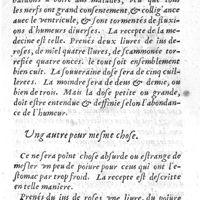 les nerfs ont grand consentement, & colligance
auec le ventricule, & sont tormentés de fluxiõs
d'humeurs diuerses. La recepte de la medecine
est telle. Prenés deux liures de ius de
roses, de miel quatre liures, de scammonee torrefiée
quatre onces: le tout soit ensemblement
bien cuit. La souueraine dose sera de cinq cuillerees.
La moindre sera de deus & demie, ou
bien de trois. Mais la dose petite ou grande,
doit estre entendue & deffinie selon l'abondance
de l'humeur.
Vng autre pour mesme chose.
Ce ne sera point chose absurde ou estrange de
mesler vn peu de poiure pour ceus qui ont l'estomac
par trop froid. La recepte est descritte
en telle maniere.
Prenés du ius de roses vne liure, du poiure